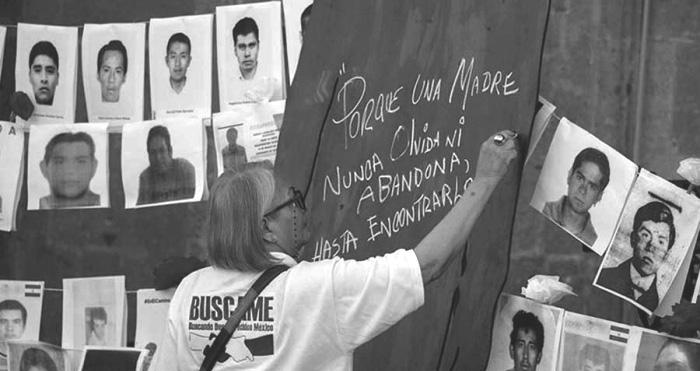 "PORQUE UNA MADRE
NUNCA OLVIDA NI
ABANDONA,
HASTA ENCONTRARLO
BUSCAME
Buscando México